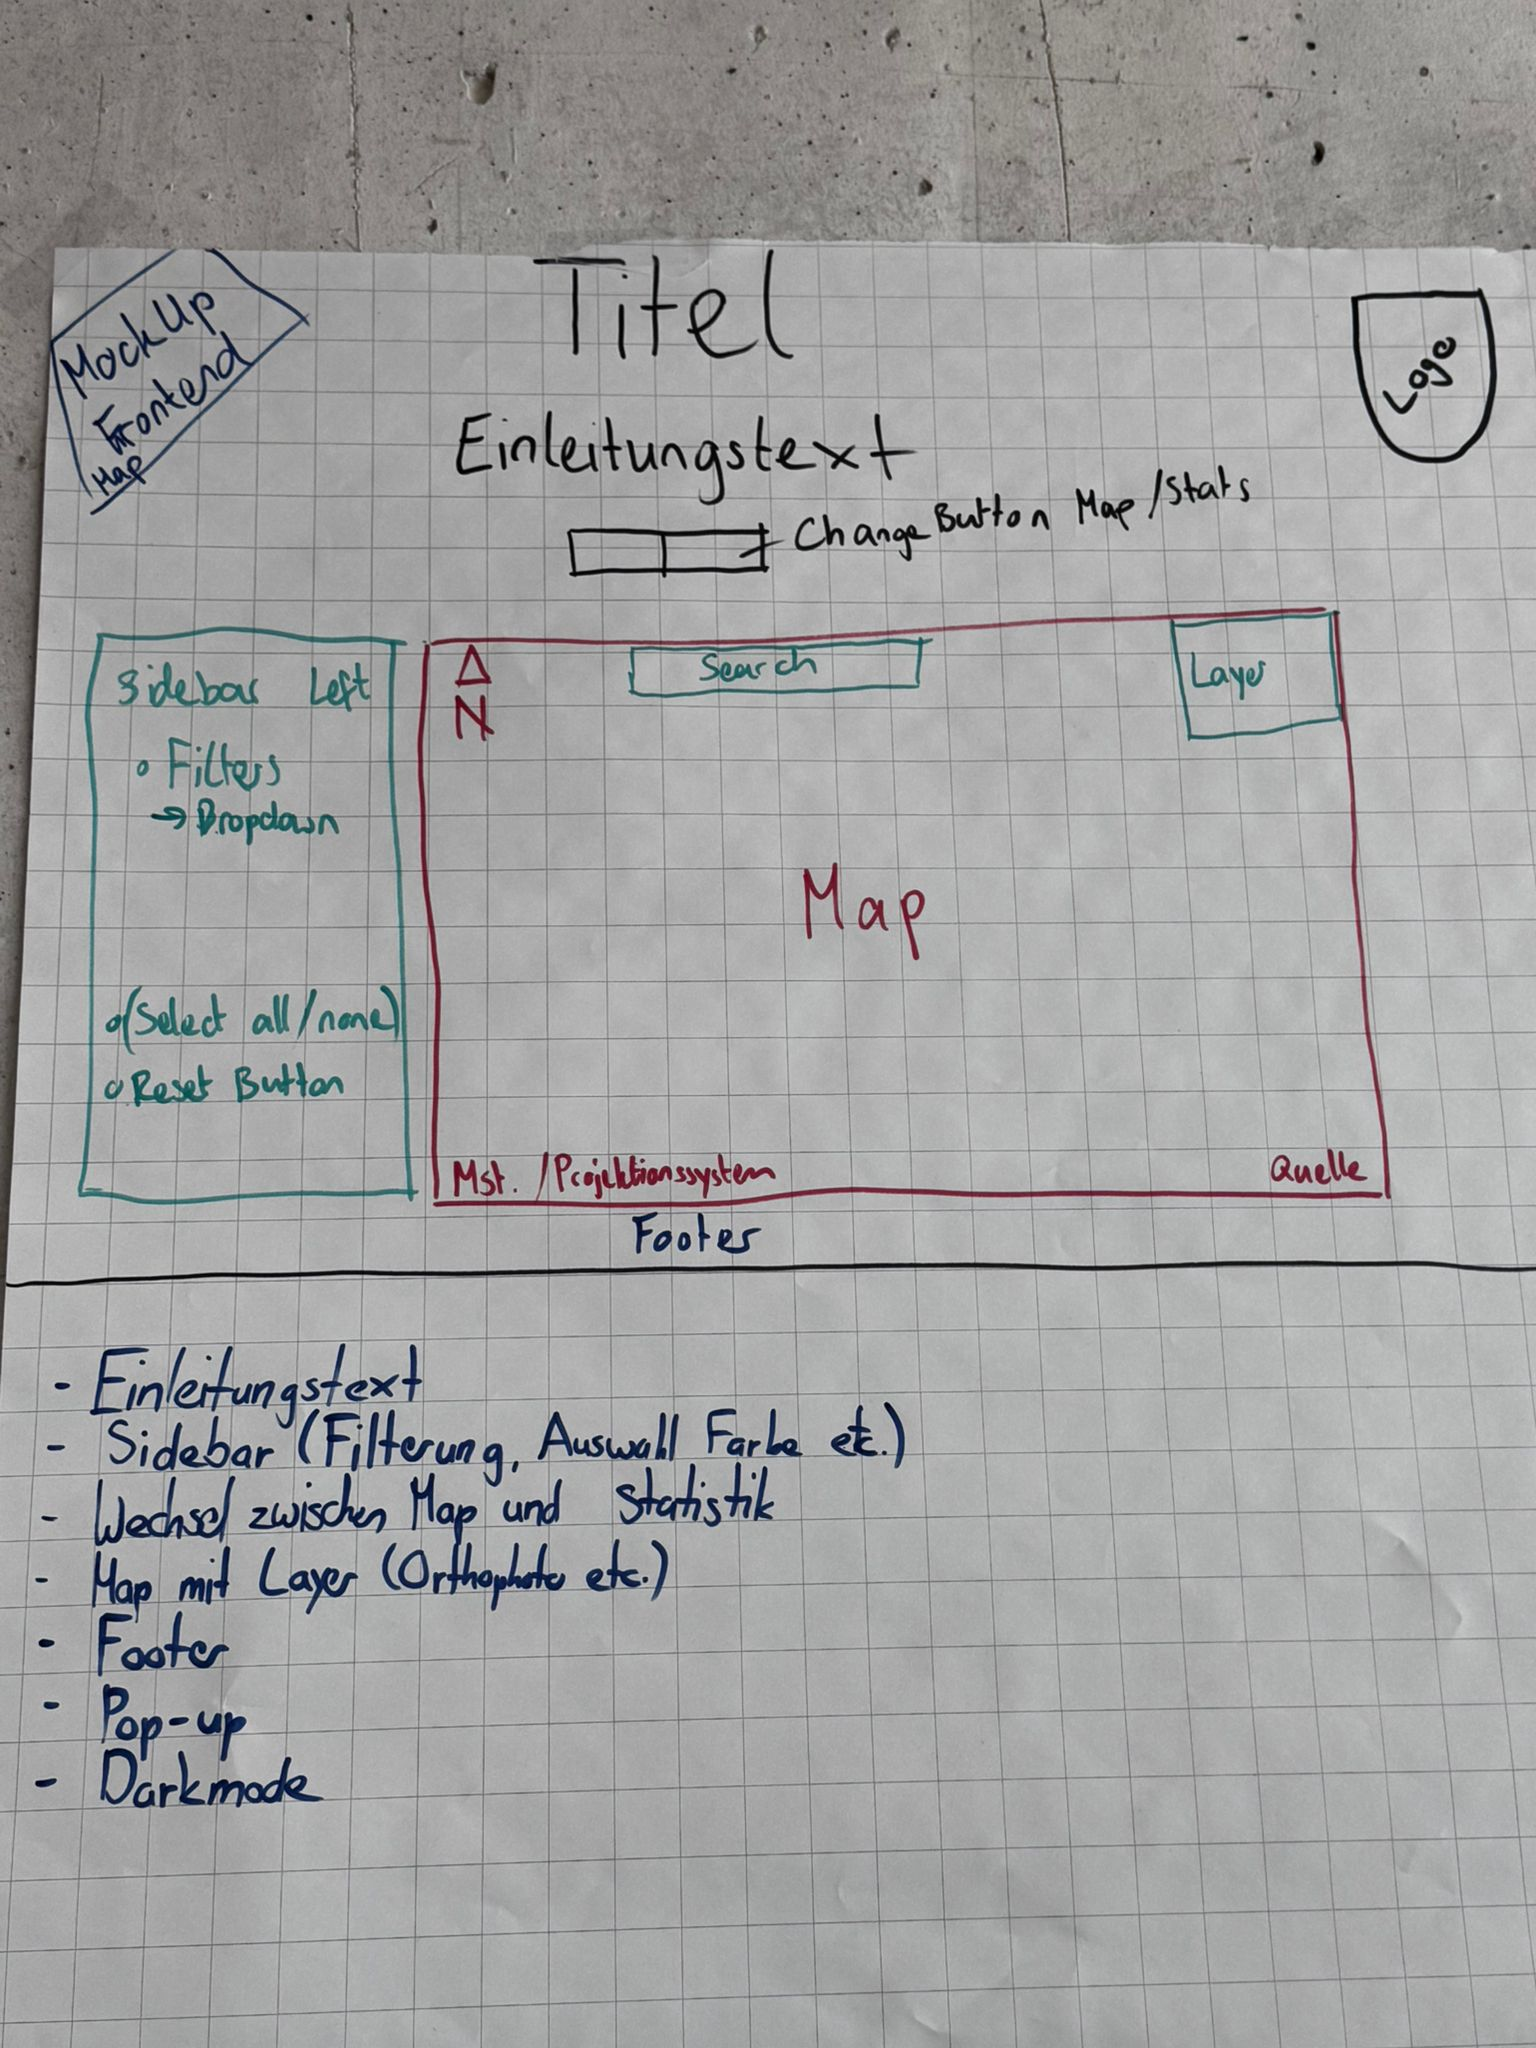 MockUp
Frontend
Map
Titel
Logo
Einleitungstext
Change Button Map / Stats
Sidebar Left
Filters
→ Dropdown
(Select all/none)
Reset Button
N
Search
Layer
Map
Mst. / Projektionssystem
Quelle
Footer
- Einleitungstext
- Sidebar (Filterung, Auswahl Farbe etc.)
- Wechsel zwischen Map und Statistik
- Map mit Layer (Orthophoto etc.)
- Footer
- Pop-up
- Darkmode